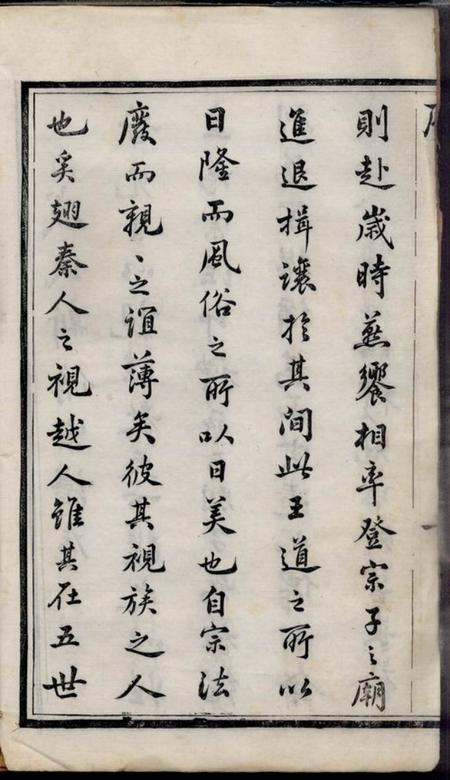 則赴歲時蒸饗相率登宗子之廟
進退揖讓於其间此王道之所以
日隆而風俗之所以日美也自宗法
廢而親〻之誼薄矣彼其視族之人
也奚翅秦人之視越人雖其在五世